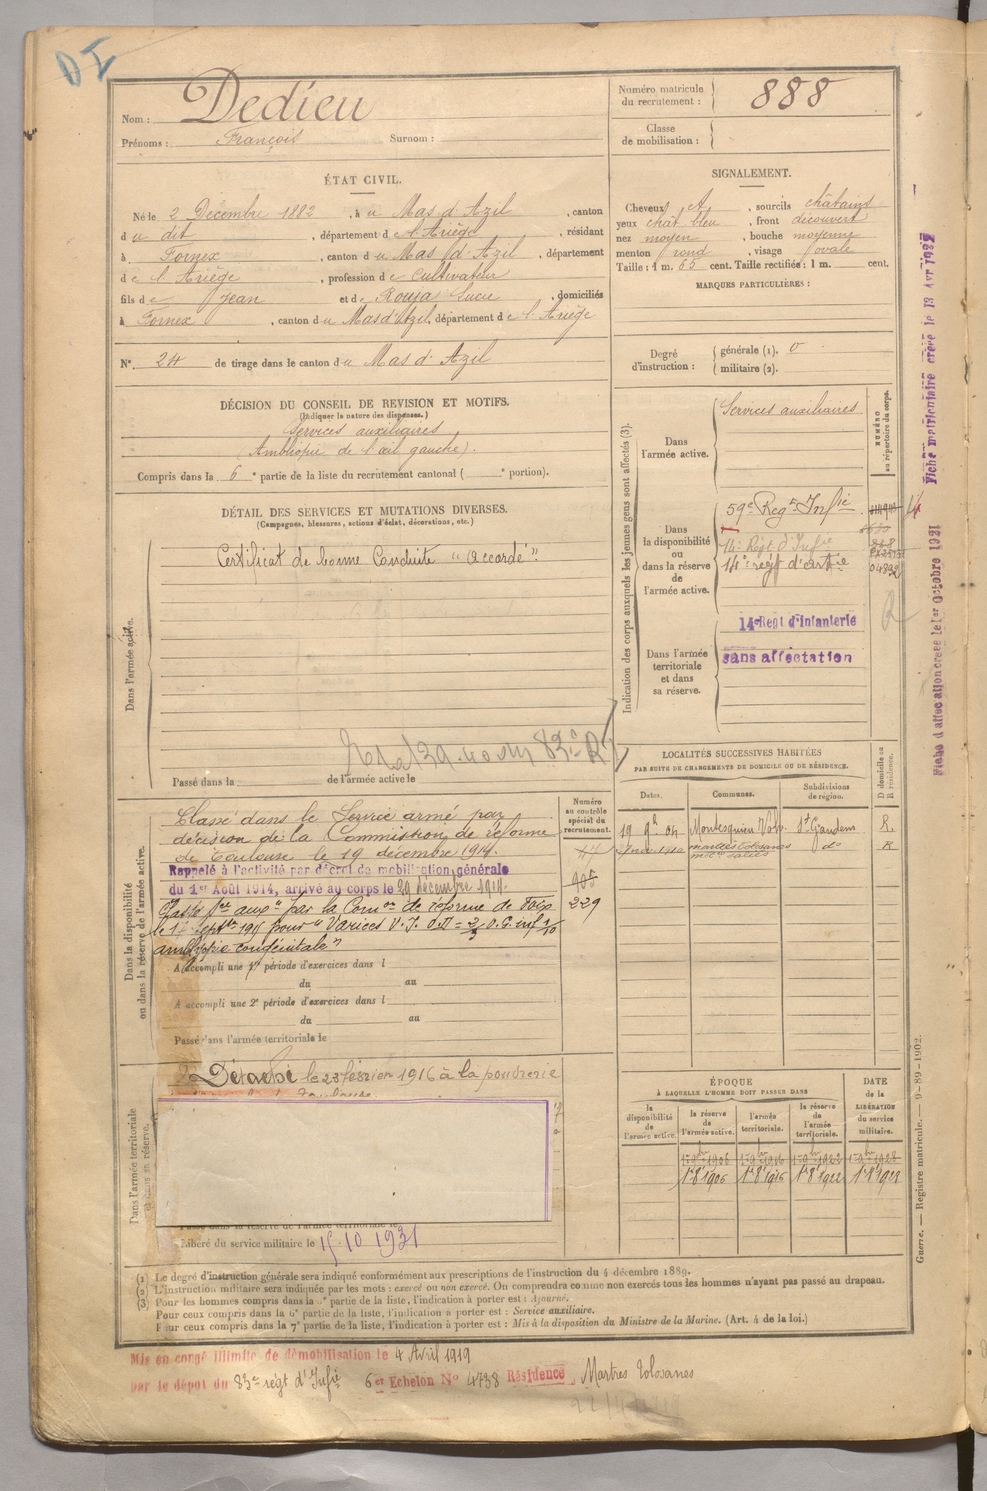 DI
Nom : Dedieu
Prénoms : François Surnom :
Numéro matricule du recrutement : 888
Classe de mobilisation :
ÉTAT CIVIL.
Né le 2 Décembre 1882, à u Mas d'Azil, canton
d u dit, département d e l'Ariège, résidant
à Fornex, canton d u Mas d'Azil, département
d e l'Ariège, profession d e cultivateur
fils d e Jean et d e Rouja Lucie, domiciliés
à Fornex, canton d u Mas d'Azil, département d e l'Ariège
N° 24 de tirage dans le canton d u Mas d'Azil
SIGNALEMENT.
Cheveux, sourcils châtains
yeux chât bleu, front découvert
nez moyen, bouche moyenne
menton rond, visage ovale
Taille : 1 m. 65 cent. Taille rectifiée : 1 m. cent.
MARQUES PARTICULIÈRES :
Degré d'instruction : générale (1). 0
militaire (2).
DÉCISION DU CONSEIL DE REVISION ET MOTIFS.
(Indiquer la nature des dispenses.)
Services auxiliaires
(Ambliopie de l'œil gauche).
Compris dans la 6e partie de la liste du recrutement cantonal ( e portion).
DÉTAIL DES SERVICES ET MUTATIONS DIVERSES.
(Campagnes, blessures, actions d'éclat, décorations, etc.)
Dans l'armée active.
Certificat de bonne Conduite "accordé".
82e R
Passé dans la de l'armée active le
Indication des corps auxquels les jeunes gens sont affectés (3).
NUMÉRO au répertoire du corps.
Dans l'armée active.
Services auxiliaires
Dans la disponibilité ou dans la réserve de l'armée active.
59e Regt Infie
14e Regt d'Infie
14e regt d'artie
Dans l'armée territoriale et dans sa réserve.
14e Regt d'infanterie
sans affectation
Fiche matriculaire créée le 13 Avr 1922
Fiche d'affectation créée le 1er Octobre 1921
LOCALITÉS SUCCESSIVES HABITÉES
PAR SUITE DE CHANGEMENTS DE DOMICILE OU DE RÉSIDENCE.
Dates. Communes. Subdivisions de région. D domicile ou R résidence.
19 9b 04 Montesquieu Volv. St Gaudens R.
do R
Dans la disponibilité ou dans la réserve de l'armée active.
Numéro au contrôle spécial du recrutement.
Classé dans le Service armé par
décision de la Commission de réforme
de Toulouse le 19 décembre 1914.
Rappelé à l'activité par décret de mobilisation générale
du 1er Août 1914, arrivé au corps le 29 décembre 1914.
905
229
Classé Sce auxre par la Comon de réforme de Foix
pour "Varices V.J.
amblyopie congénitale"
A accompli une 1re période d'exercices dans l
du au
A accompli une 2e période d'exercices dans l
du au
Passé dans l'armée territoriale le
Dans l'armée territoriale et dans sa réserve.
Détaché le 23 février 1916 à la poudrerie
Libéré du service militaire le 15.10 1931
ÉPOQUE
À LAQUELLE L'HOMME DOIT PASSER DANS
DATE de la LIBÉRATION du service militaire.
la disponibilité de l'armée active. la réserve de l'armée active. l'armée territoriale. la réserve de l'armée territoriale.
1r 8b 1906 1r 8b 1916 1r 8b 1922 1r 8b 1928
Guerre. — Registre matricule. — 9-89-1902.
(1) Le degré d'instruction générale sera indiqué conformément aux prescriptions de l'instruction du 4 décembre 1889.
(2) L'instruction militaire sera indiquée par les mots : exercé ou non exercé. On comprendra comme non exercés tous les hommes n'ayant pas passé au drapeau.
(3) Pour les hommes compris dans la 5e partie de la liste, l'indication à porter est : Ajourné.
Pour ceux compris dans la 6e partie de la liste, l'indication à porter est : Service auxiliaire.
Pour ceux compris dans la 7e partie de la liste, l'indication à porter est : Mis à la disposition du Ministre de la Marine. (Art. 4 de la loi.)
Mis en congé illimité de démobilisation le 4 Avril 1919
par le dépôt du 83e régt d'Infie 6er Echelon N° 4738 Résidence Martres Tolosanes